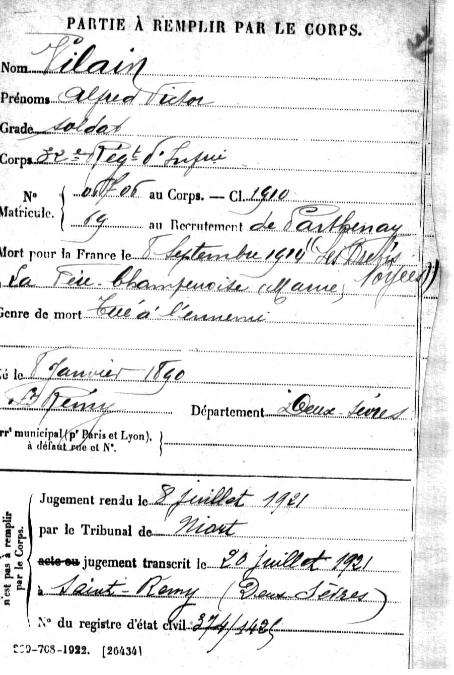 PARTIE À REMPLIR PAR LE CORPS.
Nom Vilain
Prénoms Alfred Victor
Grade soldat
Corps 32e Régt d'Infrie
No
Matricule.
au Corps. — Cl. 1910
69 au Recrutement de Parthenay
Mort pour la France le 8 Septembre 1914
La Fère-Champenoise (Marne)
Genre de mort Tué à l'ennemi
Né le 8 Janvier 1890
St Rémy Département Deux-Sèvres
Arrt municipal (pr Paris et Lyon),
à défaut rue et No.
n'est pas à remplir
par le Corps.
Jugement rendu le 8 juillet 1921
par le Tribunal de Niort
acte ou jugement transcrit le 20 juillet 1921
à Saint-Remy (Deux Sèvres)
No du registre d'état civil
[26434]